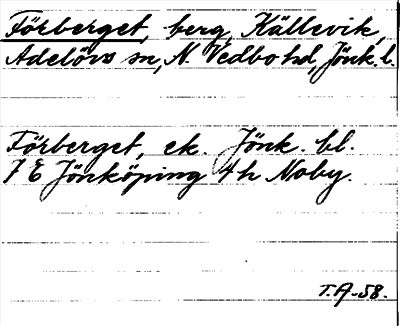 Förberget, berg, Källevik,
Adelövs sn, N. Vedbo hd, Jönk. l.
Förberget, ek. Jönk. bl.
7 E Jönköping 4 h Noby.
T.A-58.